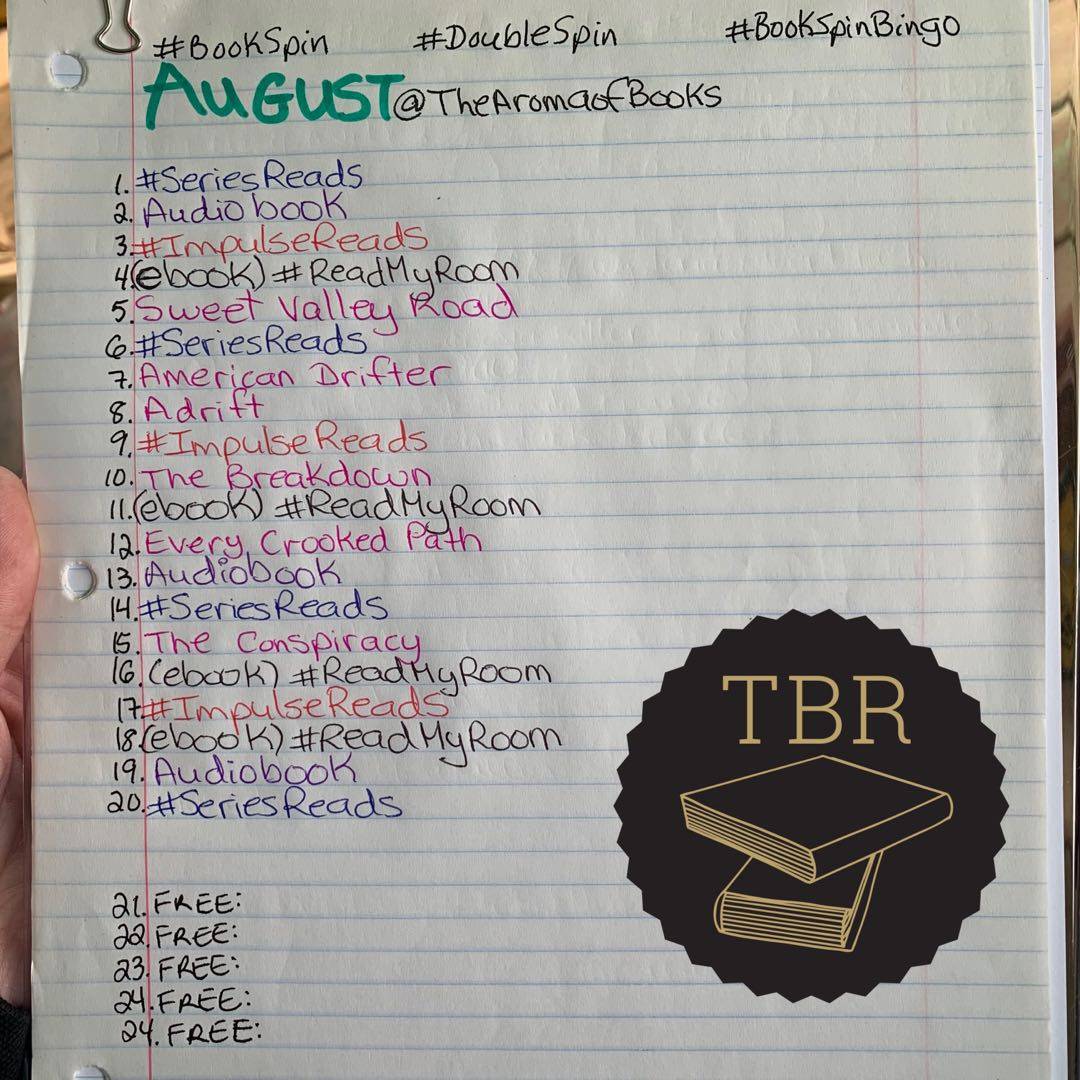 #BookSpin #DoubleSpin #BookSpinBingo
AUGUST @TheAromaofBooks
1. #SeriesReads
2. Audiobook
3. #ImpulseReads
4. (ebook) #ReadMyRoom
5. Sweet Valley Road
6. #SeriesReads
7. American Drifter
8. Adrift
9. #ImpulseReads
10. The Breakdown
11. (ebook) #ReadMyRoom
12. Every Crooked Path
13. Audiobook
14. #SeriesReads
15. The Conspiracy
16. (ebook) #ReadMyRoom
17. #ImpulseReads
18. (ebook) #ReadMyRoom
19. Audiobook
20. #SeriesReads
TBR
21. FREE:
22. FREE:
23. FREE:
24. FREE:
24. FREE: